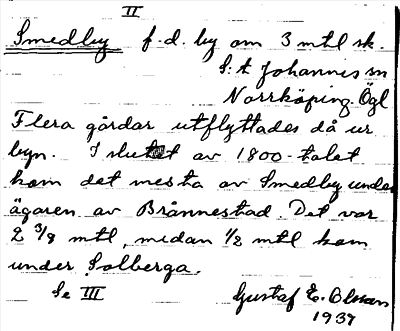 II
Smedby f.d. by om 3 mtl sk.
S:t Johannis sn
Norrköping Ögl
Flera gårdar utflyttades då ur
byn. I slutet av 1800-talet
kom det mesta av Smedby under
ägaren av Brånnestad. Det var
2 3/8 mtl, medan 1/2 mtl kom
under Solberga.
Se III Gustaf E. Olsson
1937